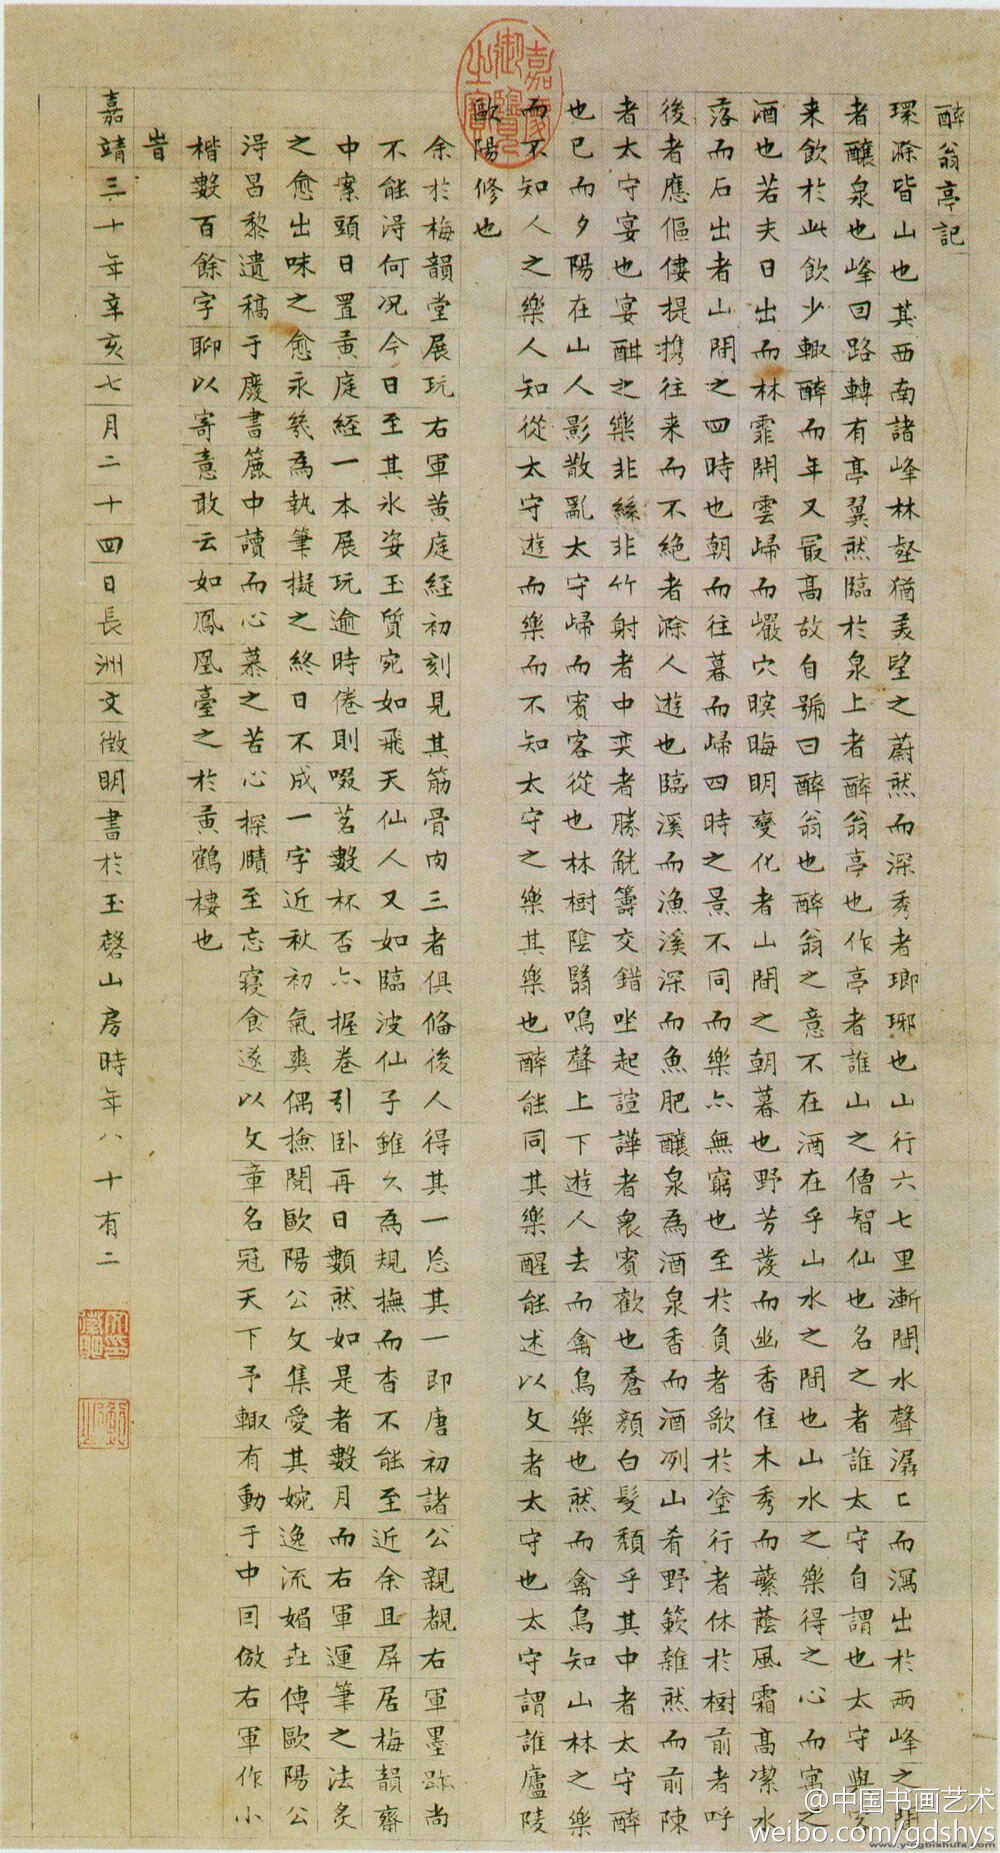 醉翁亭記
環滁皆山也其西南諸峰林壑猶美望之蔚然而深秀者瑯琊也山行六七里漸聞水聲潺〻而瀉出於兩峰之間
者釀泉也峰回路轉有亭翼然臨於泉上者醉翁亭也作亭者誰山之僧智仙也名之者誰太守自謂也太守與客
来飲於此飲少輙醉而年又最高故自號曰醉翁也醉翁之意不在酒在乎山水之間也山水之樂得之心而寓之
酒也若夫日出而林霏開雲歸而巖穴暝晦明變化者山間之朝暮也野芳發而幽香佳木秀而蘩蔭風霜高潔水
落而石出者山間之四時也朝而往暮而歸四時之景不同而樂亦無窮也至於負者歌於塗行者休於樹前者呼
後者應傴僂提攜往来而不絕者滁人遊也臨溪而漁溪深而魚肥釀泉為酒泉香而酒冽山肴野蔌雜然而前陳
者太守宴也宴酣之樂非絲非竹射者中奕者勝觥籌交錯坐起諠譁者衆賓歡也蒼顏白髮頹乎其中者太守醉
也已而夕陽在山人影散亂太守歸而賓客從也林樹陰翳鳴聲上下遊人去而禽鳥樂也然而禽鳥知山林之樂
而不知人之樂人知從太守遊而樂而不知太守之樂其樂也醉能同其樂醒能述以文者太守也太守謂誰廬陵
歐陽修也
余於梅韻堂展玩右軍黄庭經初刻見其筋骨肉三者俱俻後人得其一忘其一即唐初諸公親覩右軍墨跡尚
不能淂何况今日至其氷姿玉質宛如飛天仙人又如臨波仙子雖久為規撫而杳不能至近余且屏居梅韻齋
中案頭日置黄庭經一本展玩逾時倦則啜茗數杯否亦握卷引卧再日顙然如是者數月而右軍運筆之法炙
之愈出味之愈永㡬為執筆擬之終日不成一字近秋初氣爽偶撿閱歐陽公文集愛其婉逸流媚㕥傳歐陽公
淂昌黎遺稿于廢書簏中讀而心慕之苦心探賾至忘寢食遂以文章名冠天下予輙有動于中囙倣右軍作小
楷數百餘字聊以寄意敢云如鳳凰臺之於黄鶴樓也
旹
嘉靖三十年辛亥七月二十四日長洲文徵明書於玉磬山房時年八十有二
嘉慶御覽之寶
@中国书画艺术
weibo.com/gdshys
www.yingbishufa.com